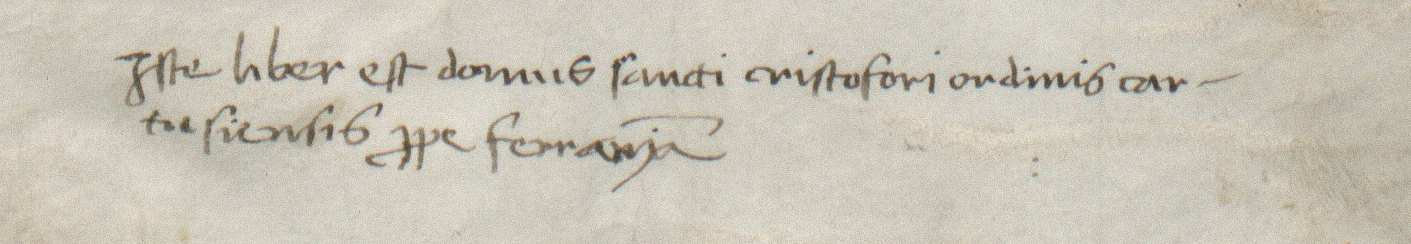 Iste liber est domus sancti cristofori ordinis car-
tusiensis ꝓpe ferrariā